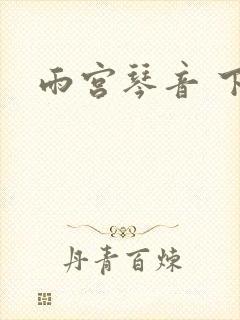 雨宫琴音 下
丹青百炼